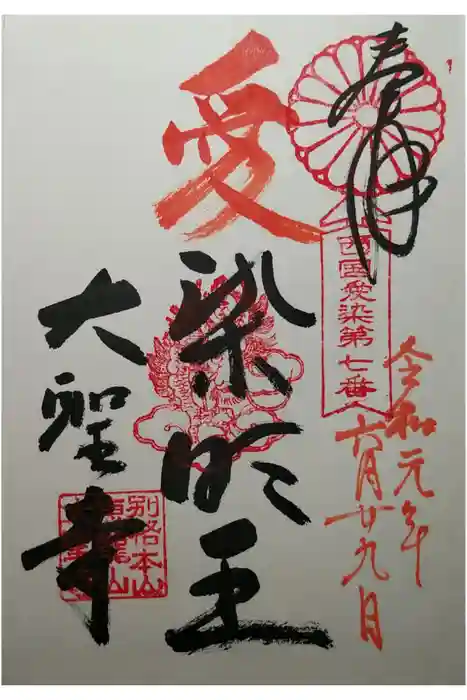 奉拝
西國愛染第七番
令和元年
六月廿九日
愛染明王
大聖寺
別格本山